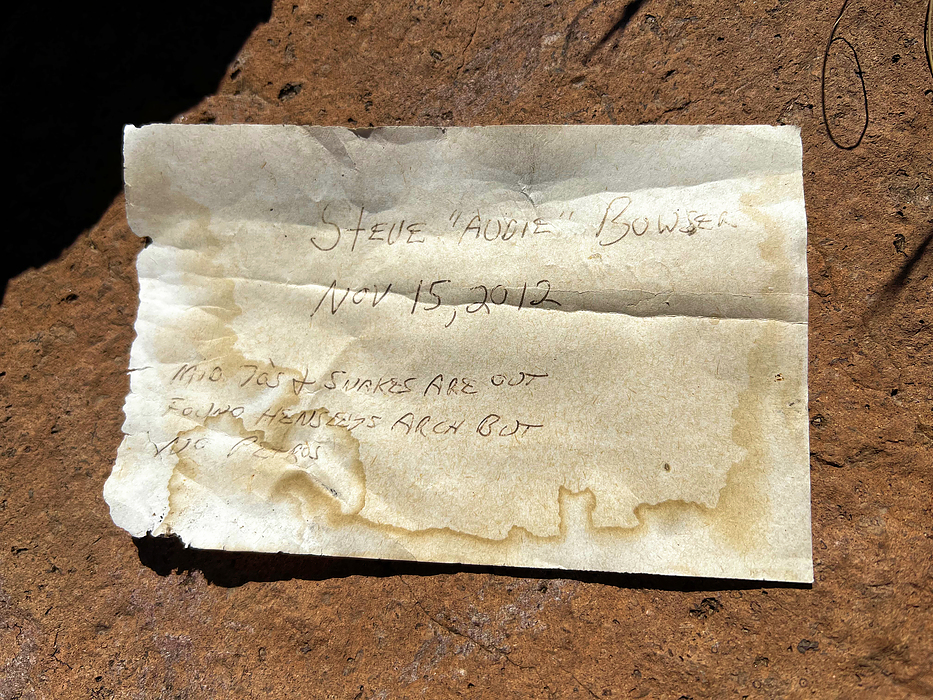 Steve "Audie" Bowser
Nov 15, 2012
Mid 70s & Snakes Are out
Found Hensleys Arch But
No Petros